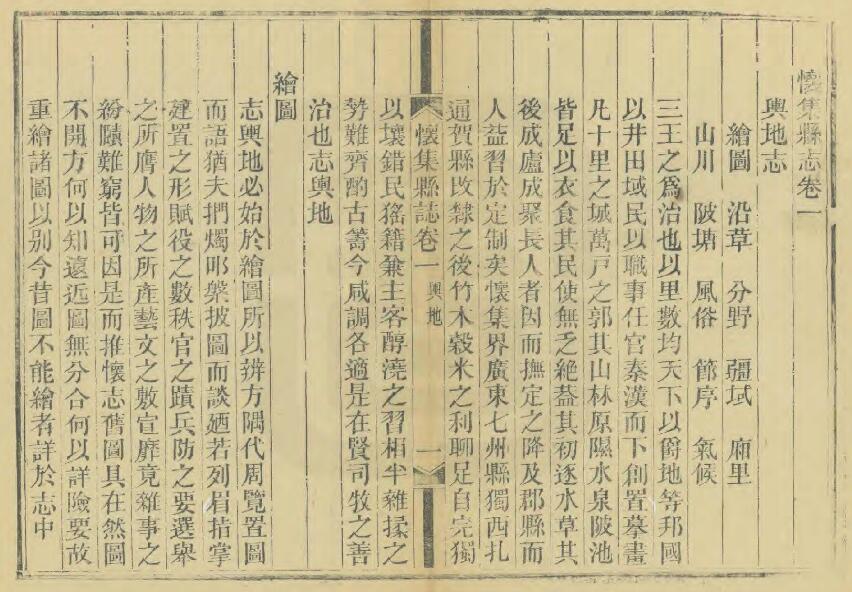 懷集縣志卷一
輿地志
繪圖 沿革 分野 疆域 廂里
山川 陂塘 風俗 節序 氣候
三王之為治也以里數均天下以爵地等邦國
以井田域民以職事任官秦漢而下創置摹畫
凡十里之城萬戸之郭其山林原隰水泉陂池
皆足以衣食其民使無乏絕葢其初逐水草其
後成廬成聚長人者因而撫定之降及郡縣而
人益習於定制矣懷集界廣東七州縣獨西扎
通賀縣改隸之後竹木穀米之利聊足自完獨
懷集縣誌卷一 輿地 一
以壤錯民猺籍兼主客醇澆之習相半雜揉之
勢難齊酌古籌今咸調各適是在賢司牧之善
治也志輿地
繪圖
志輿地必始於繪圖所以辨方隅代周覽置圖
而語猶夫捫燭叩槃披圖而談廼若列眉指掌
建置之形賦役之數秩官之蹟兵防之要選舉
之所膺人物之所產藝文之敷宣靡竟雜事之
紛賾難窮皆可因是而推懷志舊圖具在然圖
不開方何以知遠近圖無分合何以詳險要故
重繪諸圖以别今昔圖不能繪者詳於志中